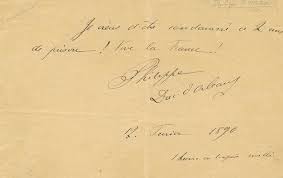 Je viens d'être condamné à 2 ans
de prison ! Vive la France !
Philippe
Duc d'Orléans
12 Février 1890
1 heure